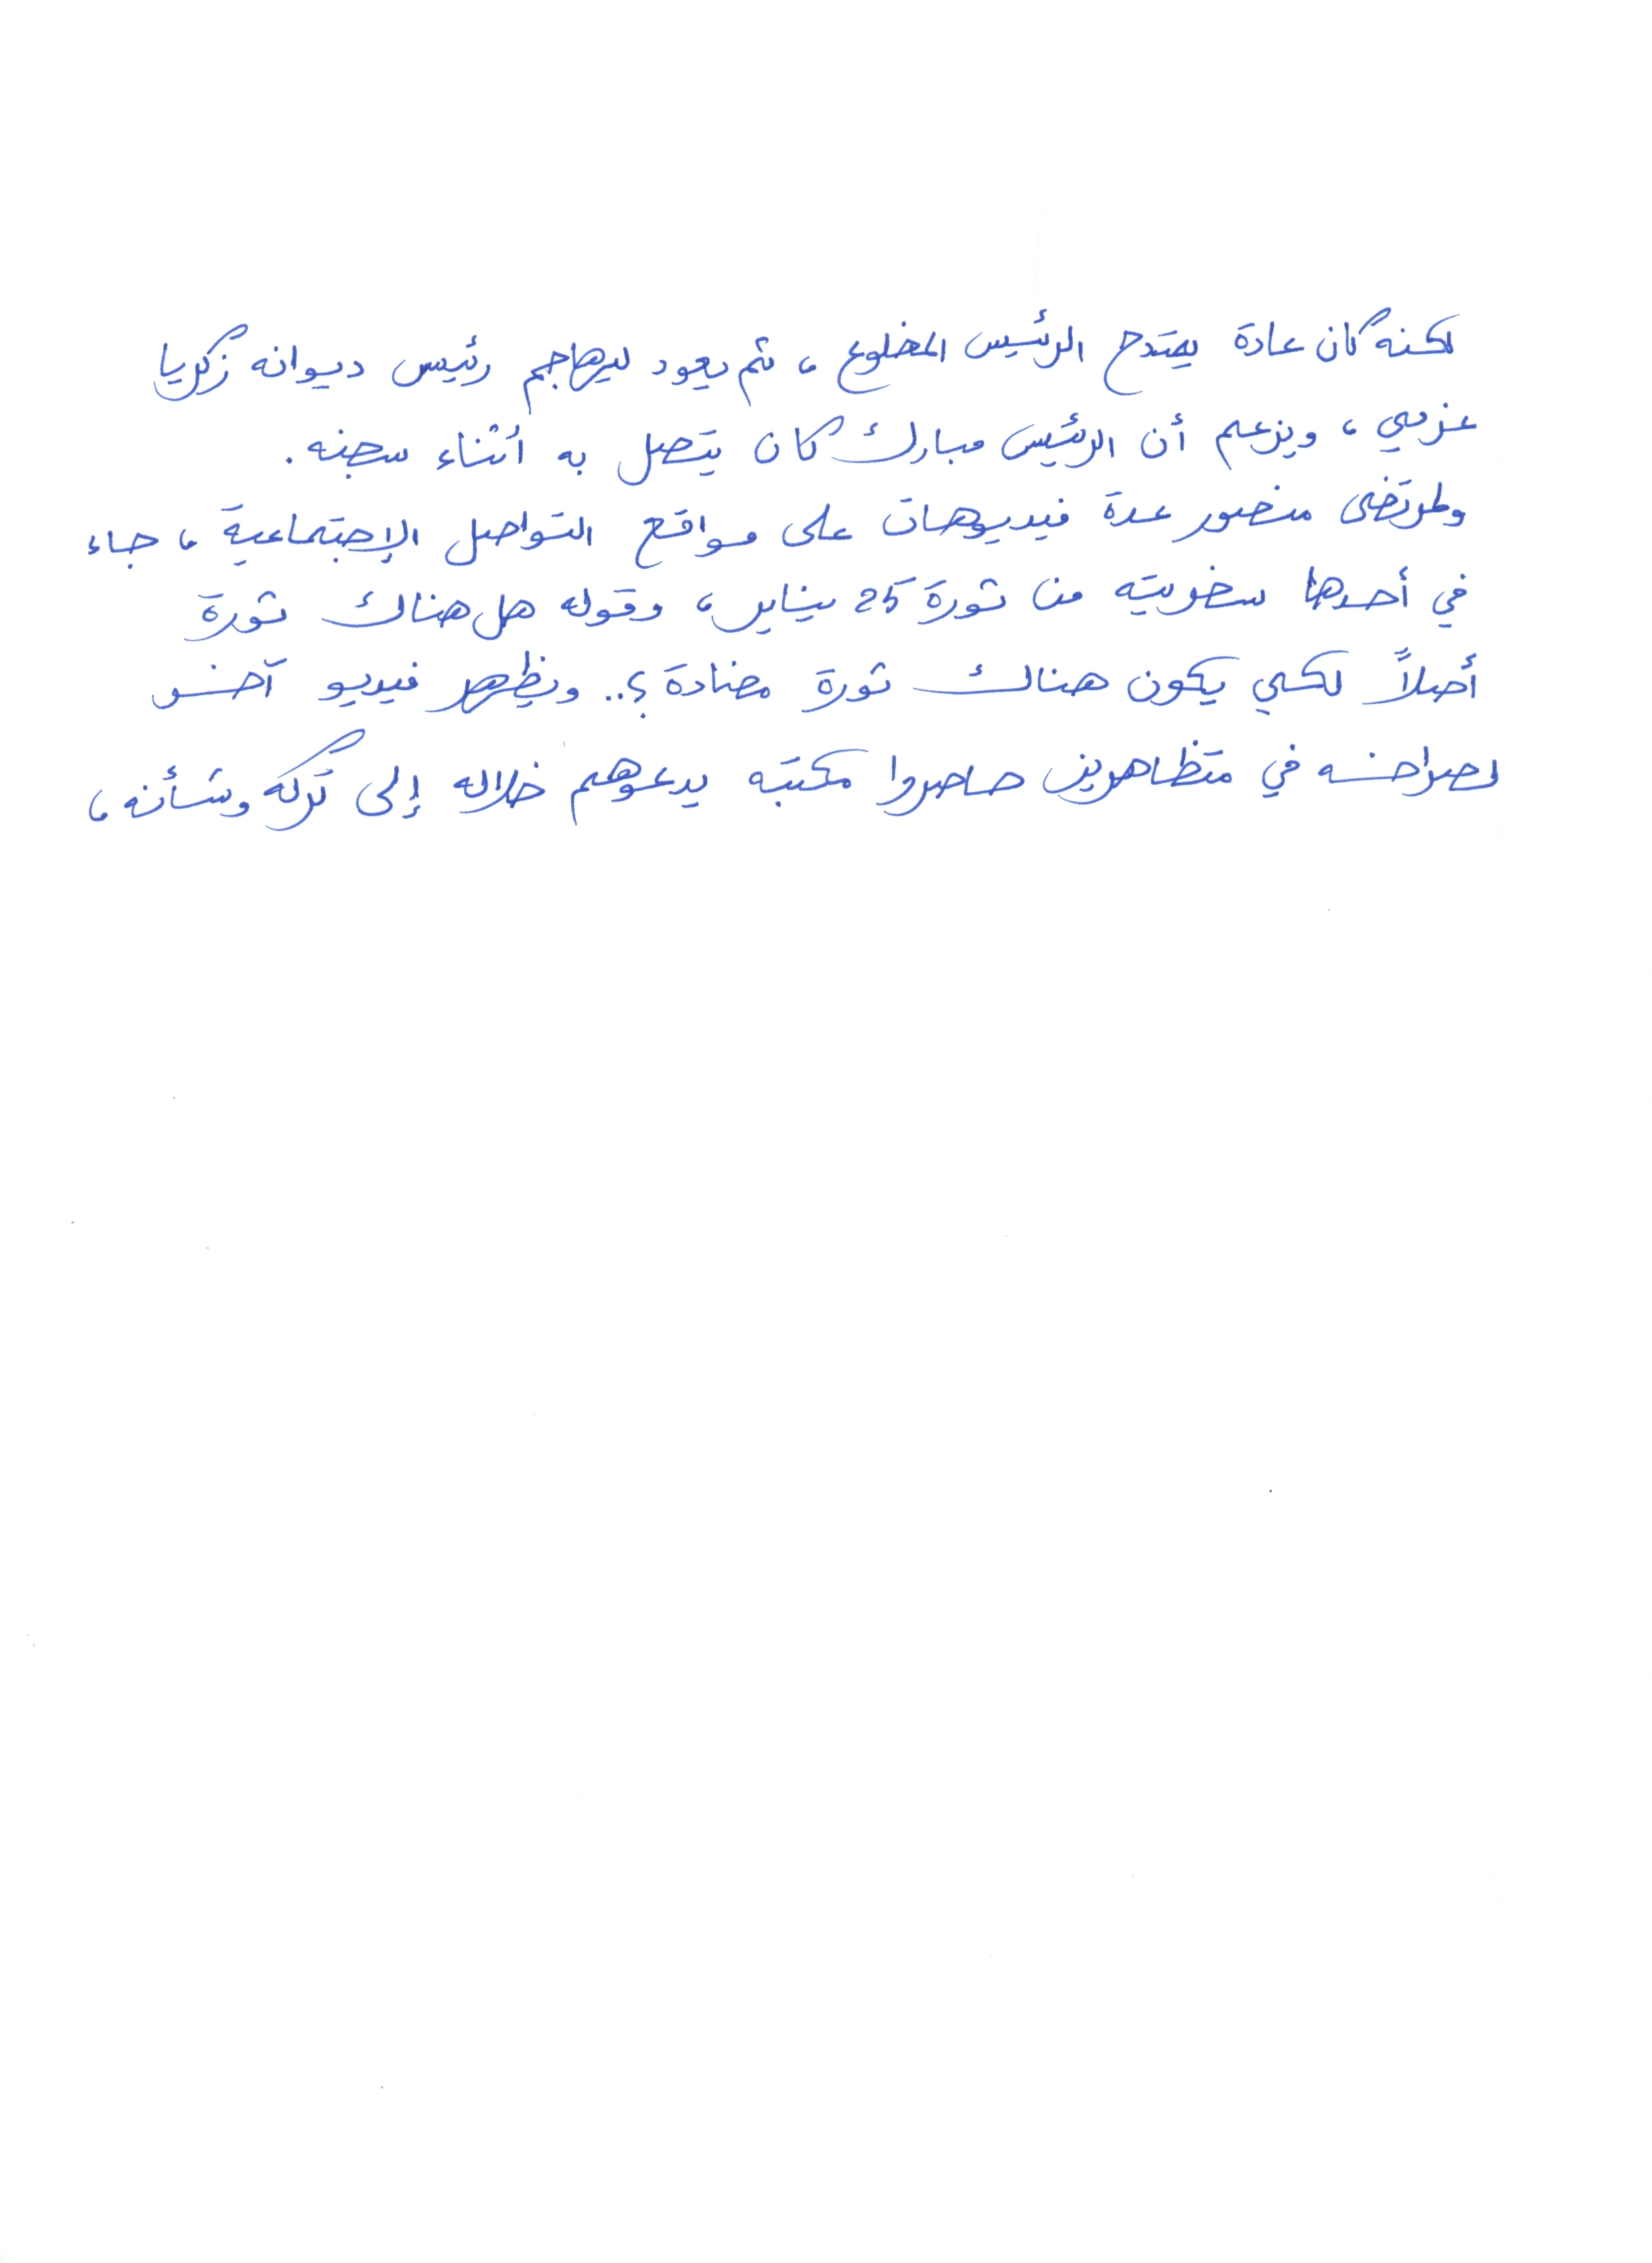 لكنه كان عادة يمتدح الرئيس المخلوع، ثم يعود ليهاجم رئيس ديوانه زكريا
عزمي، ويزعم أن الرئيس مبارك كان يتصل به أثناء سجنه.
ولمرتضى منصور عدة فيديوهات على مواقع التواصل الإجتماعية، جاء
في أحدها سخريته من ثورة 25 يناير، وقوله هل هناك ثورة
أصلاً لكي يكون هناك ثورة مضادة؟.. ويظهر فيديو آخر
صراخه في متظاهرين حاصروا مكتبه يدعوهم خلاله إلى تركه وشأنه،